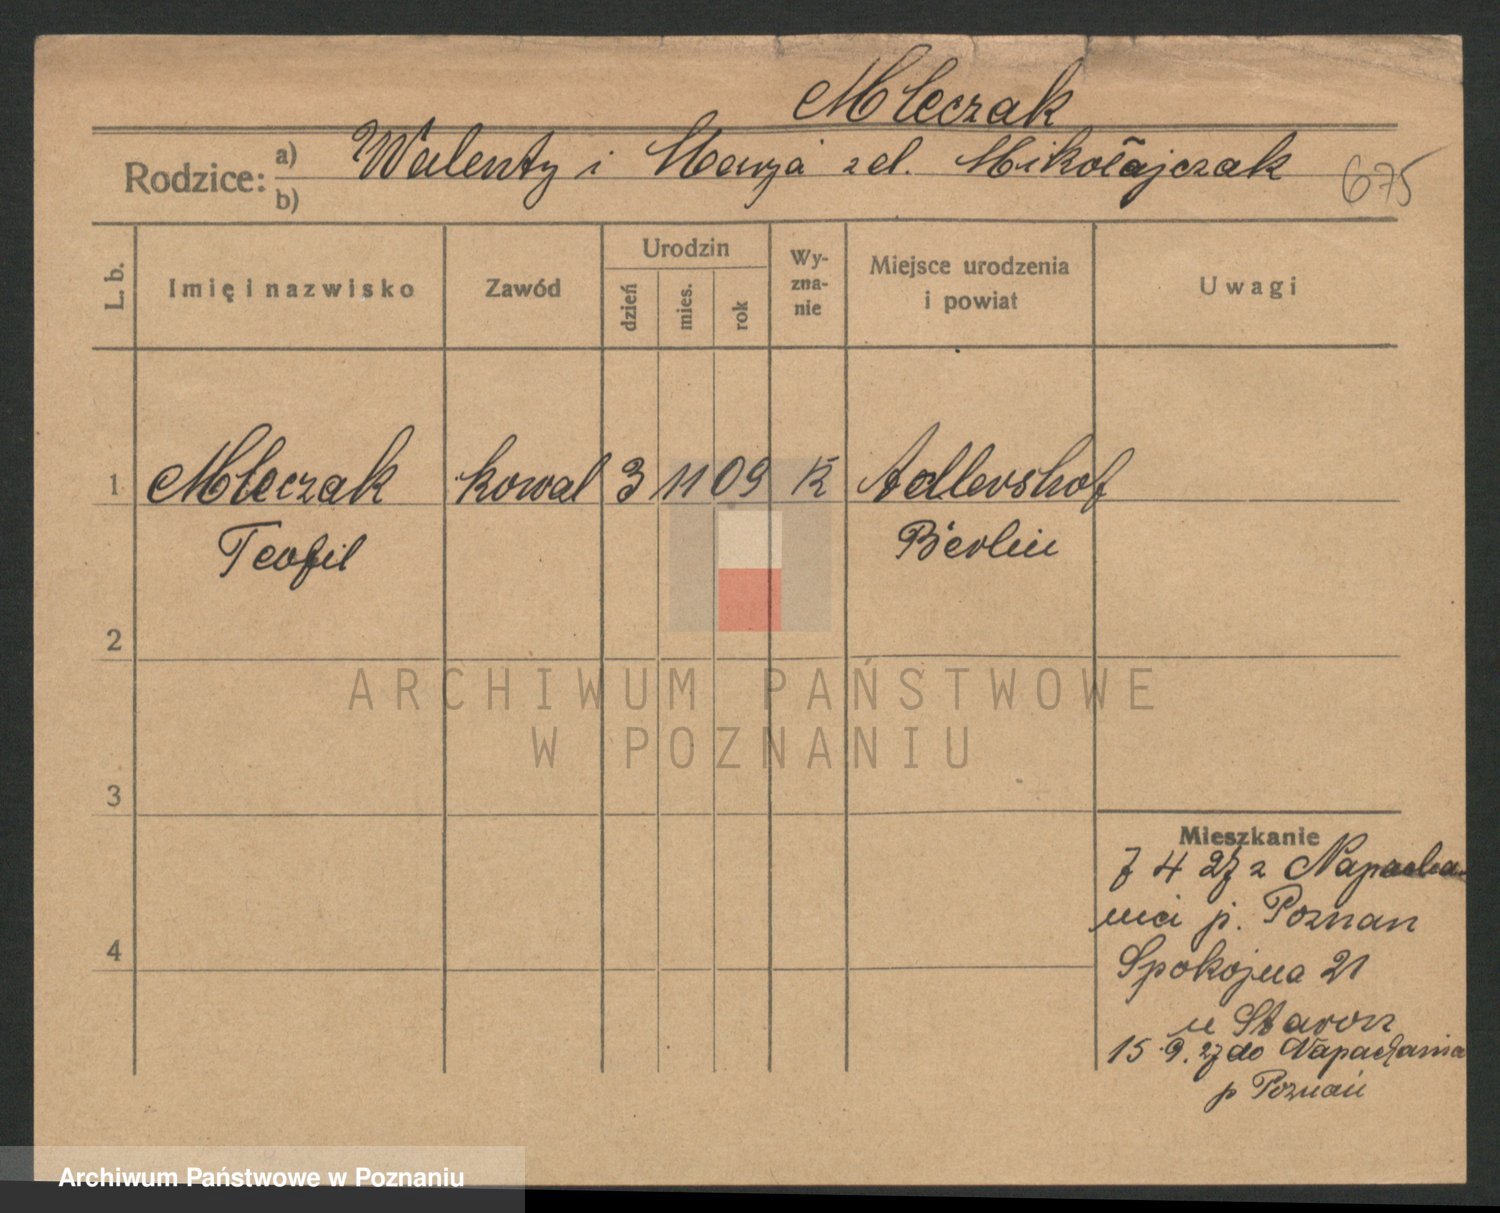 Mleczak
Rodzice: a) Walenty i Marja zd. Mikołajczak 675
b)
L. b. Imię i nazwisko Zawód Urodzin dzień mies. rok Wy-zna-nie Miejsce urodzenia i powiat Uwagi
1 Mleczak kowal 3 11 09 K Adlershof
Teofil Berlin
2
3
4
Mieszkanie
7 4 27 z Napacha-
nia p. Poznan
Spokojna 21
u Staron
15.9.27 do Napachania
p Poznań
ARCHIWUM PAŃSTWOWE
W POZNANIU
Archiwum Państwowe w Poznaniu